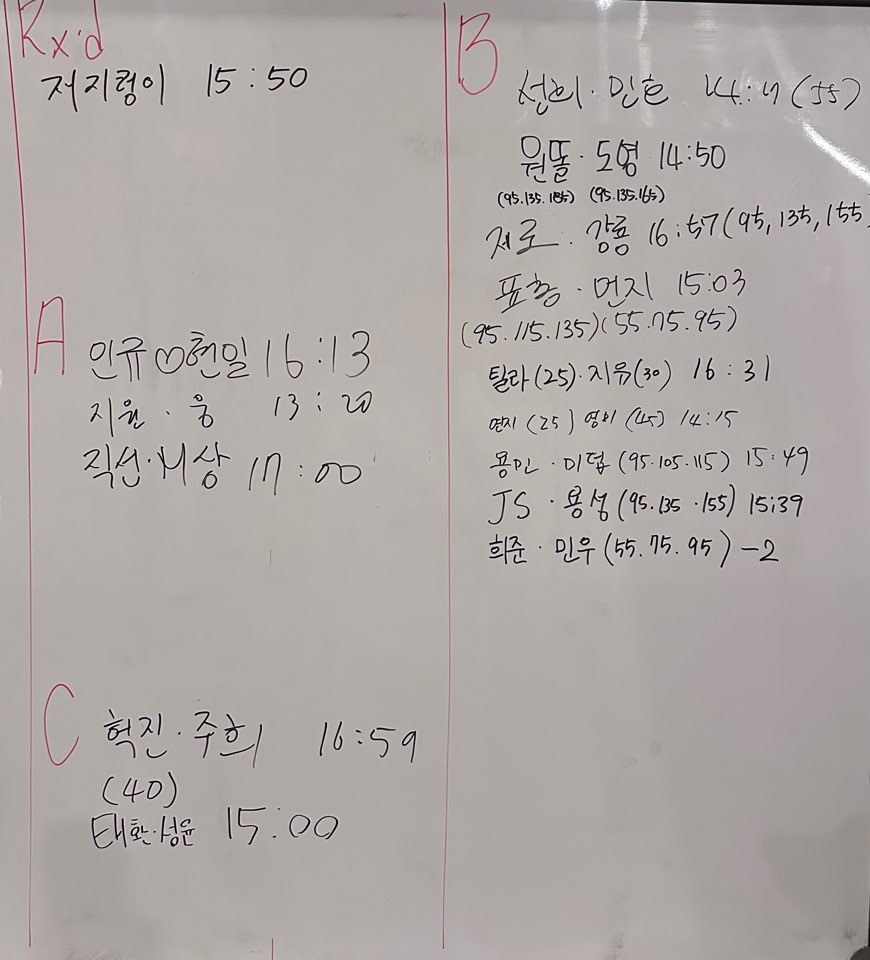 Rx'd
저지렁이 15:50
A
인규♡현일 16:13
지원·웅 13:20
직선· 17:00
C
혁진·주희 16:59
(40)
태환·성윤 15:00
B
선희·민호 (55)
원똘·도영 14:50
(95.135.185) (95.135.165)
제로·강룡 16:57(95,135,155
표형·먼지 15:03
(95.115.135)(55.75.95)
틸라(25)·지유(30) 16:31
연지(25) 영희(45) 14:15
용민·미덥(95.105.115) 15:49
JS·용성(95.135.155) 15:39
희준·민우(55.75.95) -2